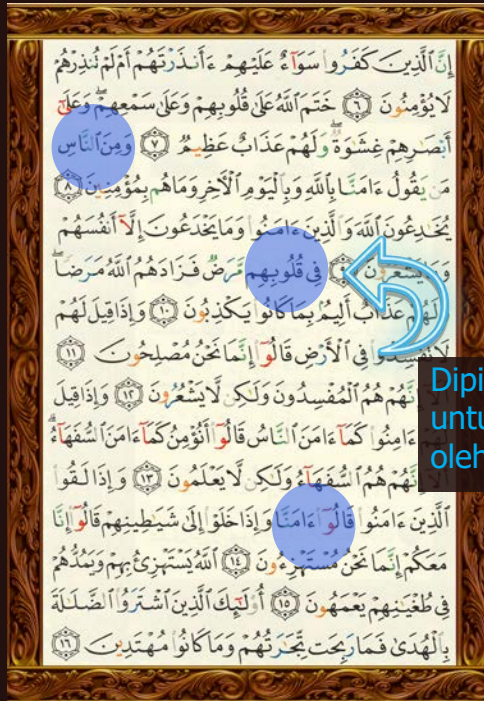 إِنَّ ٱلَّذِينَ كَفَرُوا۟ سَوَآءٌ عَلَيْهِمْ ءَأَنذَرْتَهُمْ أَمْ لَمْ تُنذِرْهُمْ
لَا يُؤْمِنُونَ ٦ خَتَمَ ٱللَّهُ عَلَىٰ قُلُوبِهِمْ وَعَلَىٰ سَمْعِهِمْ ۖ وَعَلَىٰٓ
أَبْصَٰرِهِمْ غِشَٰوَةٌ ۖ وَلَهُمْ عَذَابٌ عَظِيمٌ ٧ وَمِنَ ٱلنَّاسِ
مَن يَقُولُ ءَامَنَّا بِٱللَّهِ وَبِٱلْيَوْمِ ٱلْءَاخِرِ وَمَا هُم بِمُؤْمِنِينَ ٨
يُخَٰدِعُونَ ٱللَّهَ وَٱلَّذِينَ ءَامَنُوا۟ وَمَا يَخْدَعُونَ إِلَّآ أَنفُسَهُمْ
وَمَا يَشْعُرُونَ فِى قُلُوبِهِم مَّرَضٌ فَزَادَهُمُ ٱللَّهُ مَرَضًا ۖ
وَلَهُمْ عَذَابٌ أَلِيمٌۢ بِمَا كَانُوا۟ يَكْذِبُونَ ١٠ وَإِذَا قِيلَ لَهُمْ
لَا تُفْسِدُوا۟ فِى ٱلْأَرْضِ قَالُوٓا۟ إِنَّمَا نَحْنُ مُصْلِحُونَ ١١
إِنَّهُمْ هُمُ ٱلْمُفْسِدُونَ وَلَٰكِن لَّا يَشْعُرُونَ ١٢ وَإِذَا قِيلَ
ءَامِنُوا۟ كَمَآ ءَامَنَ ٱلنَّاسُ قَالُوٓا۟ أَنُؤْمِنُ كَمَآ ءَامَنَ ٱلسُّفَهَآءُ ۗ
إِنَّهُمْ هُمُ ٱلسُّفَهَآءُ وَلَٰكِن لَّا يَعْلَمُونَ ١٣ وَإِذَا لَقُوا۟
ٱلَّذِينَ ءَامَنُوا۟ قَالُوٓا۟ ءَامَنَّا وَإِذَا خَلَوْا۟ إِلَىٰ شَيَٰطِينِهِمْ قَالُوٓا۟ إِنَّا
مَعَكُمْ إِنَّمَا نَحْنُ مُسْتَهْزِءُونَ ١٤ ٱللَّهُ يَسْتَهْزِئُ بِهِمْ وَيَمُدُّهُمْ
فِى طُغْيَٰنِهِمْ يَعْمَهُونَ ١٥ أُو۟لَٰٓئِكَ ٱلَّذِينَ ٱشْتَرَوُا۟ ٱلضَّلَٰلَةَ
بِٱلْهُدَىٰ فَمَا رَبِحَت تِّجَٰرَتُهُمْ وَمَا كَانُوا۟ مُهْتَدِينَ ١٦
Dipi
untu
oleh